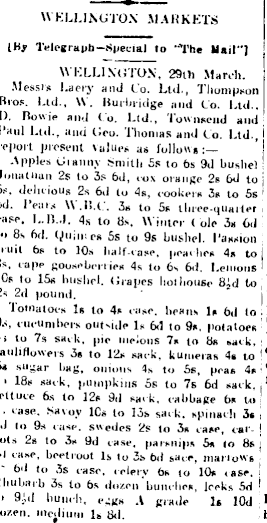 WELLINGTON MARKETS
[By Telegraph—Special to "The Mail"]
WELLINGTON, 29th March.
Messrs Laery and Co. Ltd., Thompson
Bros. Ltd., W. Burbridge and Co. Ltd.,
D. Bowie and Co. Ltd., Townsend and
Paul Ltd., and Geo. Thomas and Co. Ltd.,
report present values as follows:—
Apples Granny Smith 5s to 6s 9d bushel
Jonathan 2s to 3s 6d, cox orange 2s 6d to
5s, delicious 2s 6d to 4s, cookers 3s to 5s
6d. Pears W.B.C. 3s to 5s three-quarter
case, L.B.J. 4s to 8s, Winter Cole 3s 6d
to 8s 6d. Quinces 5s to 9s bushel. Passion
fruit 6s to 10s half-case, peaches 4s to
s, cape gooseberries 4s to 6s 6d. Lemons
10s to 15s bushel. Grapes hothouse 8½d to
2s 2d pound.
Tomatoes 1s to 4s case, beans 1s 6d to
s, cucumbers outside 1s 6d to 9s, potatoes
s to 7s sack, pie melons 7s to 8s sack,
cauliflowers 3s to 12s sack, kumeras 4s to
6s sugar bag, onions 4s to 5s, peas 4s
o 18s sack, pumpkins 5s to 7s 6d sack,
lettuce 6s to 12s 9d sack, cabbage 6s to
case, Savoy 10s to 13s sack, spinach 3s
d to 9s case, swedes 2s to 3s case, car-
rots 2s to 3s 9d case, parsnips 5s to 8s
d case, beetroot 1s to 3s 6d sace, marrows
6d to 3s case, celery 6s to 10s case,
rhubarb 3s to 6s dozen bunches, leeks 5d
o 9½d bunch, eggs A grade 1s 10d
dozen, medium 1s 8d.